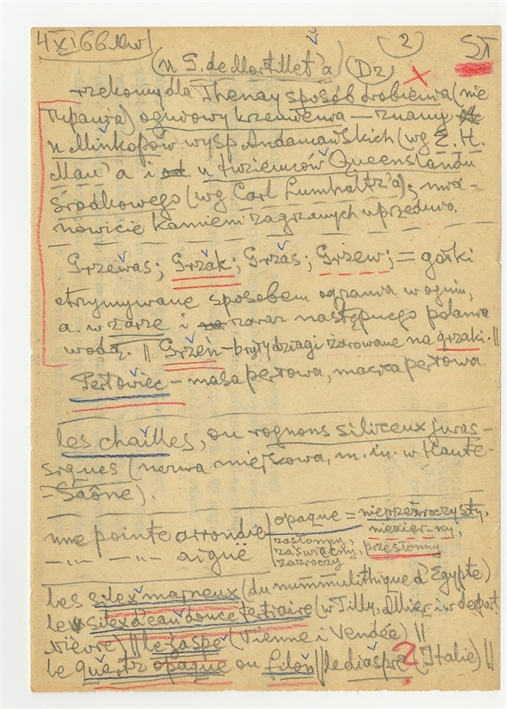 4 XI 66
2
(u G. de Mortillet'a) (Dz)
rzekomy dla Thenay sposób drobienia (nie
ogniowy krzemienia — znany
u Minkopów wysp Andamańskich (wg E. H.
Man'a i u tuziemców Queenslandu
Środkowego (wg Carl Lumholtz'a); mia-
nowicie kamieni zagrzanych uprzednio.
Grzewas; Grzak; Grzas; Grzew; = gorki
otrzymywane sposobem ogrzania w ogniu,
a. w żarze i zaraz następnego polania
wodą. || Grzeń – na grzaki. ||
Perłowiec – masa perłowa, macica perłowa
les chailles, ou rognons siliceux juras-
siques (nazwa miejscowa, m. in. w Haute-
-Saône).
une pointe arrondie
— „ — — „ — aiguë
opaque = nieprzeźroczysty,
zasłonny,
zaświecny, przesłonny
zazroczy
les silex marneux (du nummulithique d'Egypte)
le silex d'eau douce tertiaire (w Tilly, Allier, i w depart.
Nièvre) || le jaspe (Vienne i Vendée) ||
le quartz opaque ou filon || le diaspre ? (Italie) ||